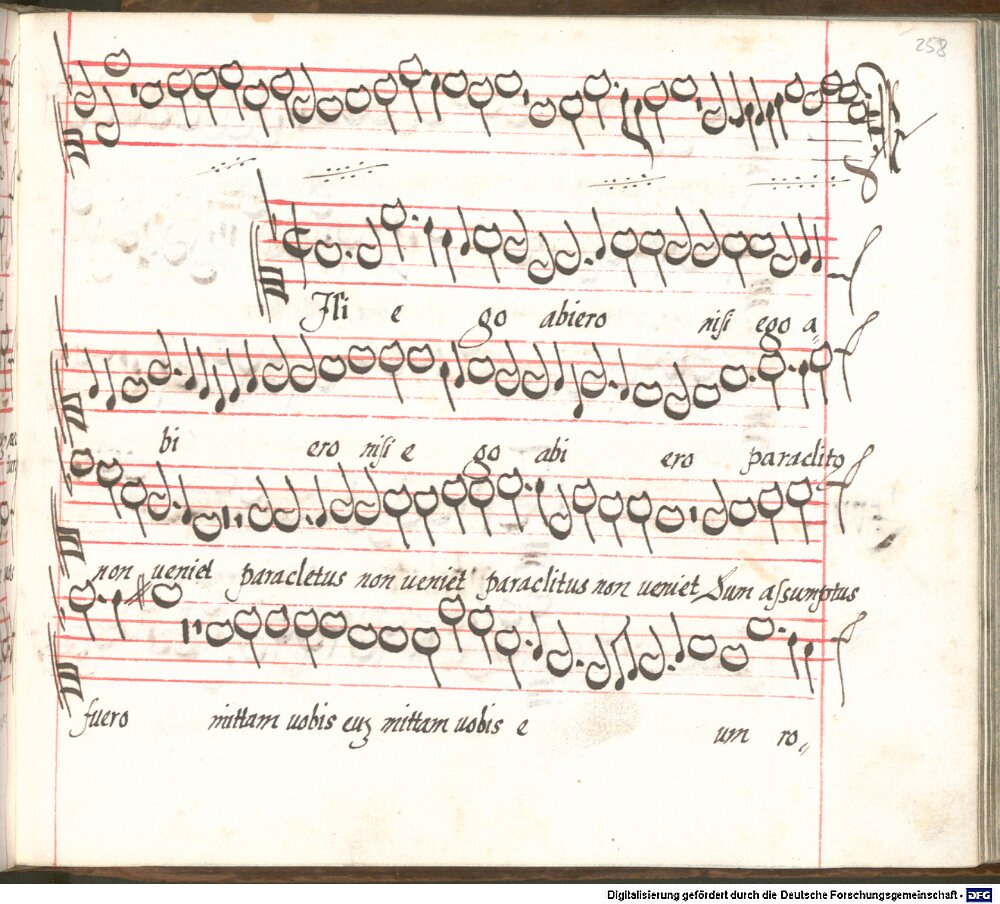 258
Nisi e go abiero nisi ego a
bi ero nisi e go abi ero paraclito
non veniet paracletus non veniet paraclitus non veniet Dum assumptus
fuero mittam uobis euz mittam uobis e um ro
Digitalisierung gefördert durch die Deutsche Forschungsgemeinschaft - DFG